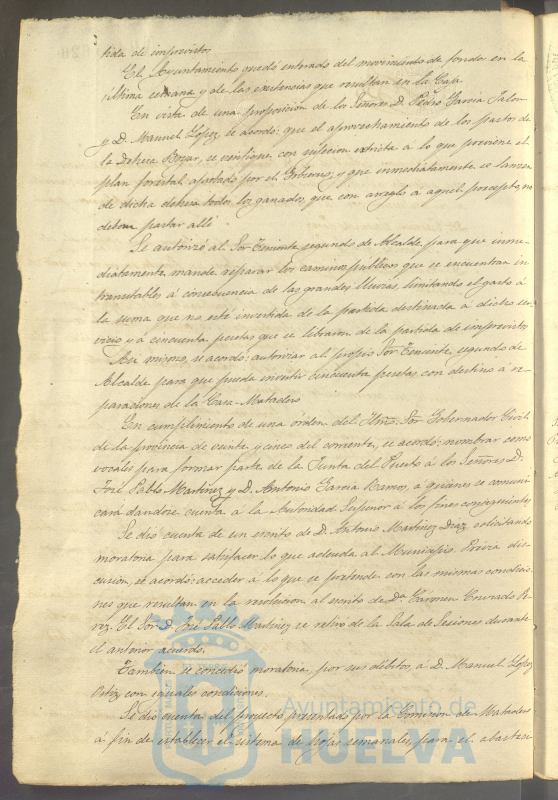 tida de imprevistos
El Ayuntamiento quedó enterado del movimiento de fondos en la
última semana y de las existencias que resultan en la Caja.
En vista de una proposicion de los Señores D. Pedro Garcia Jalon
y D. Manuel Lopez se acordó: que el aprovechamiento de los pastos de
la Dehesa Boyar, se verifique con sujecion extricta á lo que previene el
plan forestal aprobado por el Gobierno, y que inmediatamente se lanzen
de dicha dehesa todos los ganados, que con arreglo á aquel precepto, no
deban pastar allí.
Se autorizó al Sor. Teniente segundo de Alcalde para que inme-
diatamente mande reparar los caminos públicos que se encuentran in-
transitables á consecuencia de las grandes lluvias, limitando el gasto á
la suma que no esté invertida de la partida destinada á dicho ser-
vicio y a cincuenta pesetas que se libraran de la partida de imprevistos
Así mismo, se acordó: autorizar al propio Sor. Teniente segundo de
Alcalde para que pueda invertir cincuenta pesetas con destino á re-
paraciones de la Casa-Matadero
En cumplimiento de una órden del Iltmo. Sor. Gobernador Civil
de la provincia de veinte y cinco del corriente, se acordó: nombrar como
vocales para formar parte de la Junta del Puerto á los Señores D.
José Pablo Martinez y D. Antonio Garcia Ramos, á quienes se comuni-
cará dandose cuenta á la Autoridad Superior á los fines consiguientes
Se dió cuenta de un escrito de D. Antonio Martinez Diaz solicitando
moratoria para satisfacer lo que adeuda al Municipio. Prévia dis-
cusion, se acordó: acceder á lo que se pretende con las mismas condicio-
nes que resultan en la resolucion al escrito de Da. Cármen
rez. El Sor. D. José Pablo Martinez se retiró de la Sala de Sesiones durante
el anterior acuerdo.
Tambien se concedió moratoria, por sus débitos, á D. Manuel Lopez
Ortiz con iguales condiciones.
Se dió cuenta del proyecto presentado por la Comision de Matadero
á fin de establecer el sistema de semanales, para el abasteci-
Ayuntamiento de
HUELVA